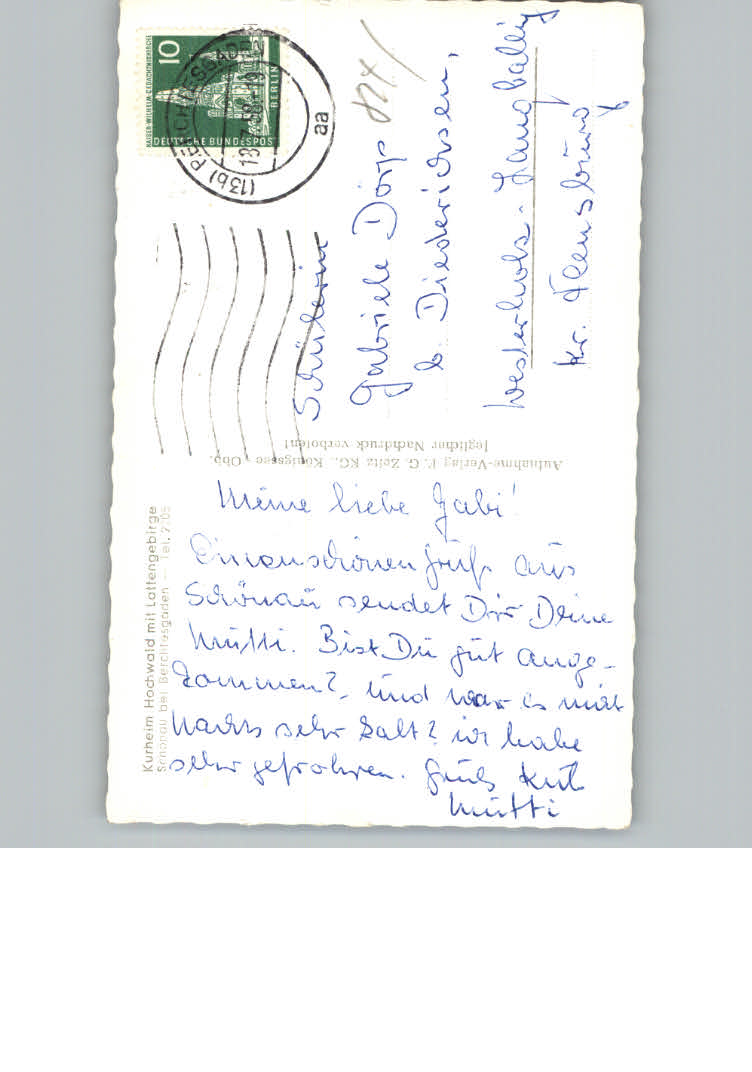 Kurheim Hochwald mit Lattengebirge
Schönau bei Berchtesgaden — Tel. 2705
Meine liebe Gabi!
Einen schönen Gruß aus
Schönau sendet Dir Deine
Mutti. Bist Du gut ange-
kommen?, und war es nicht
nachts sehr kalt? ich habe
sehr gefrohren. Gruß Kuß
Mutti
Aufnahme-Verlag F. G. Zeitz KG., Königssee - Obb.
Jeglicher Nachdruck verboten!
10
KAISER-WILHELM-GEDÄCHTNISKIRCHE
BERLIN
DEUTSCHE BUNDESPOST
(13b) BERCHTESGADEN
aa
Schülerin
Gabriele Dörp
b. Diederichsen,
Westerholz-Langballig
Kr. Flensburg